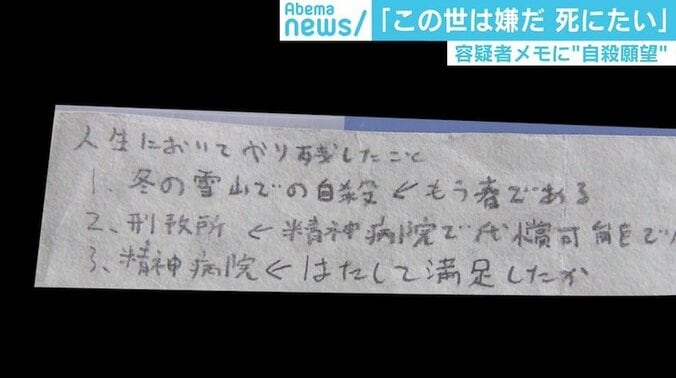 Abema
news/
「この世は嫌だ 死にたい」
容疑者メモに"自殺願望"
人生においてやり残したこと
1. 冬の雪山での自殺 ← もう
2、刑務所 ← 精神病院で代償可能で
3、精神病院 ← はたして満足したか